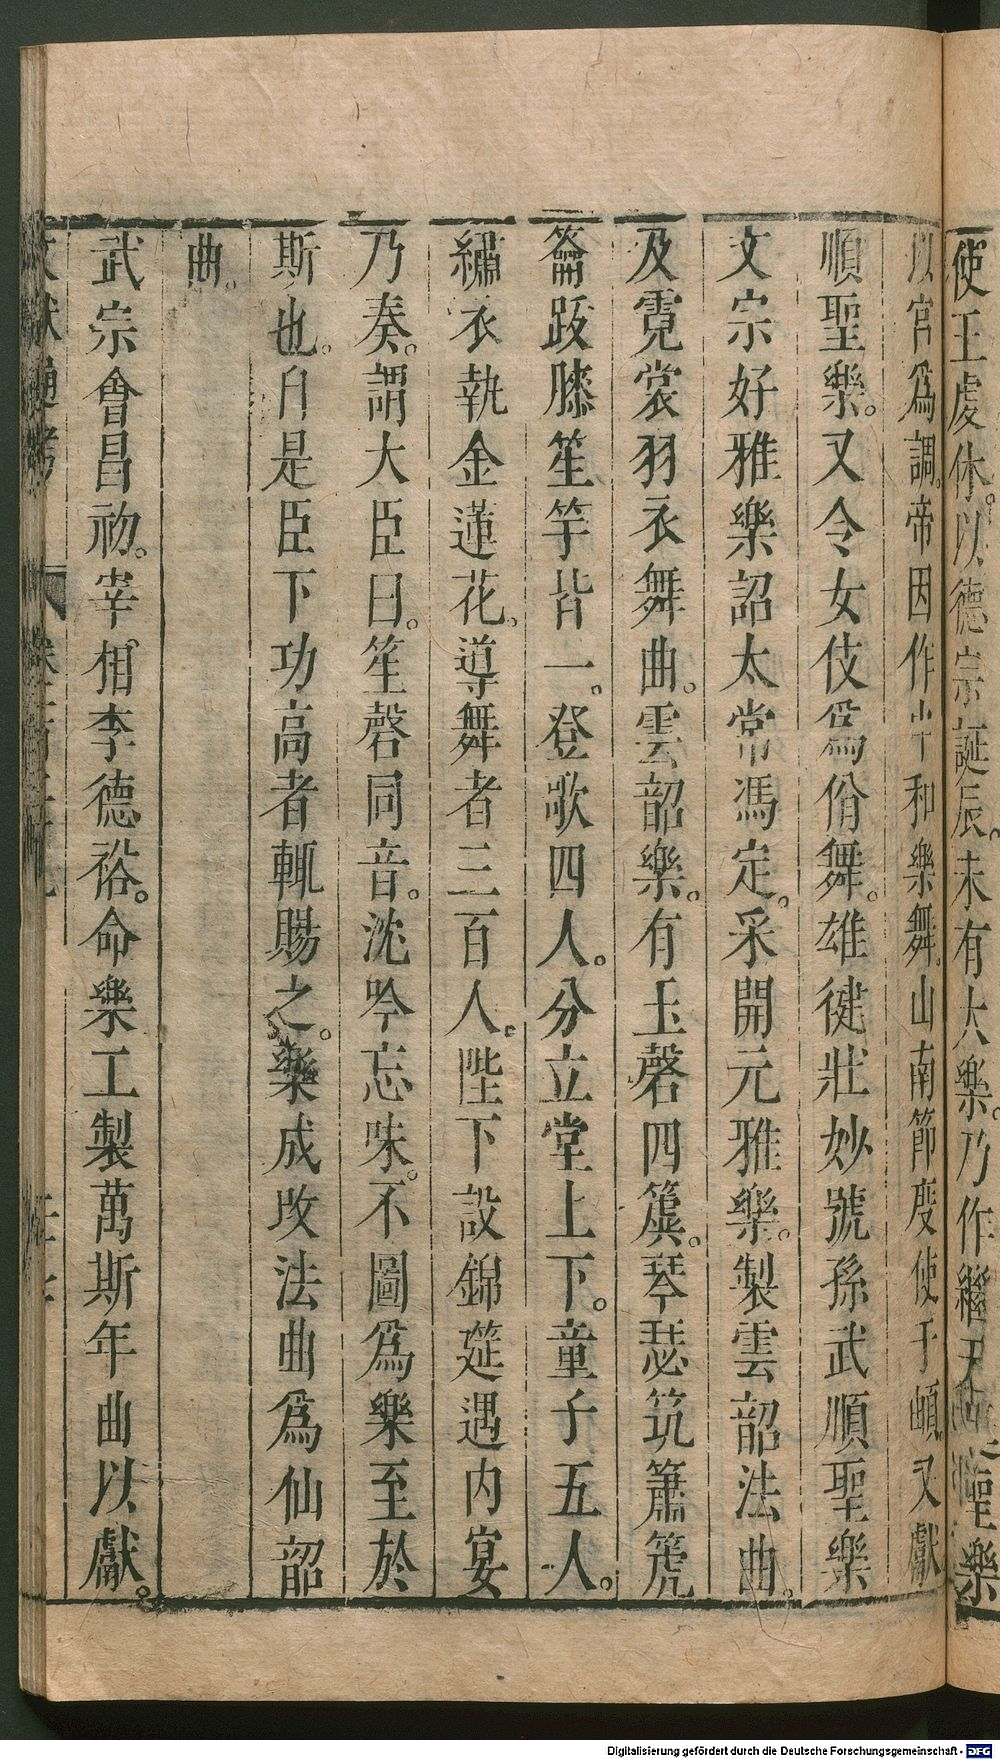 使王虔休以德宗誕辰。未有大樂。乃作繼天誕聖樂
以宮爲調。帝因作中和樂舞。山南節度使于頔。又獻
順聖樂。又令女伎爲佾舞。雄健壯妙號孫武順聖樂
文宗好雅樂詔太常馮定。采開元雅樂。製雲韶法曲。
及霓裳羽衣舞曲。雲韶樂。有玉磬四簴。琴瑟筑簫篪
籥跋膝笙竽皆一。登歌四人。分立堂上下。童子五人。
繡衣執金蓮花。導舞者三百人。陛下設錦筵遇内宴
乃奏。謂大臣曰。笙磬同音。沈吟忘味。不圖爲樂至於
斯也。自是臣下功高者輒賜之。樂成改法曲爲仙韶
曲。
武宗會昌初。宰相李德裕。命樂工製萬斯年曲以獻。
文獻通考
Digitalisierung gefördert durch die Deutsche Forschungsgemeinschaft - DFG